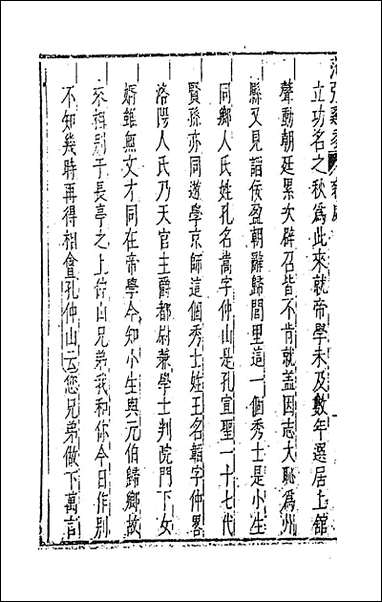 立功名之秋爲此來就帝學未及數年選居上舘
聲動朝廷累次辟召皆不肯就盖因志大恥爲州
縣又見諂佞盈朝辭歸閭里這一個秀士是小生
同鄉人氏姓孔名嵩字仲山是孔宣聖一十七代
賢孫亦同遊學京師這個秀士姓王名韜字仲畧
洛陽人氏乃天官主爵都尉兼學士判院門下女
婿雖無文才同在帝學今知小生與元伯歸鄉故
來相别于長亭之上仲山兄弟我和你今日作別
不知幾時再得相會孔仲山云您兄弟做下萬言